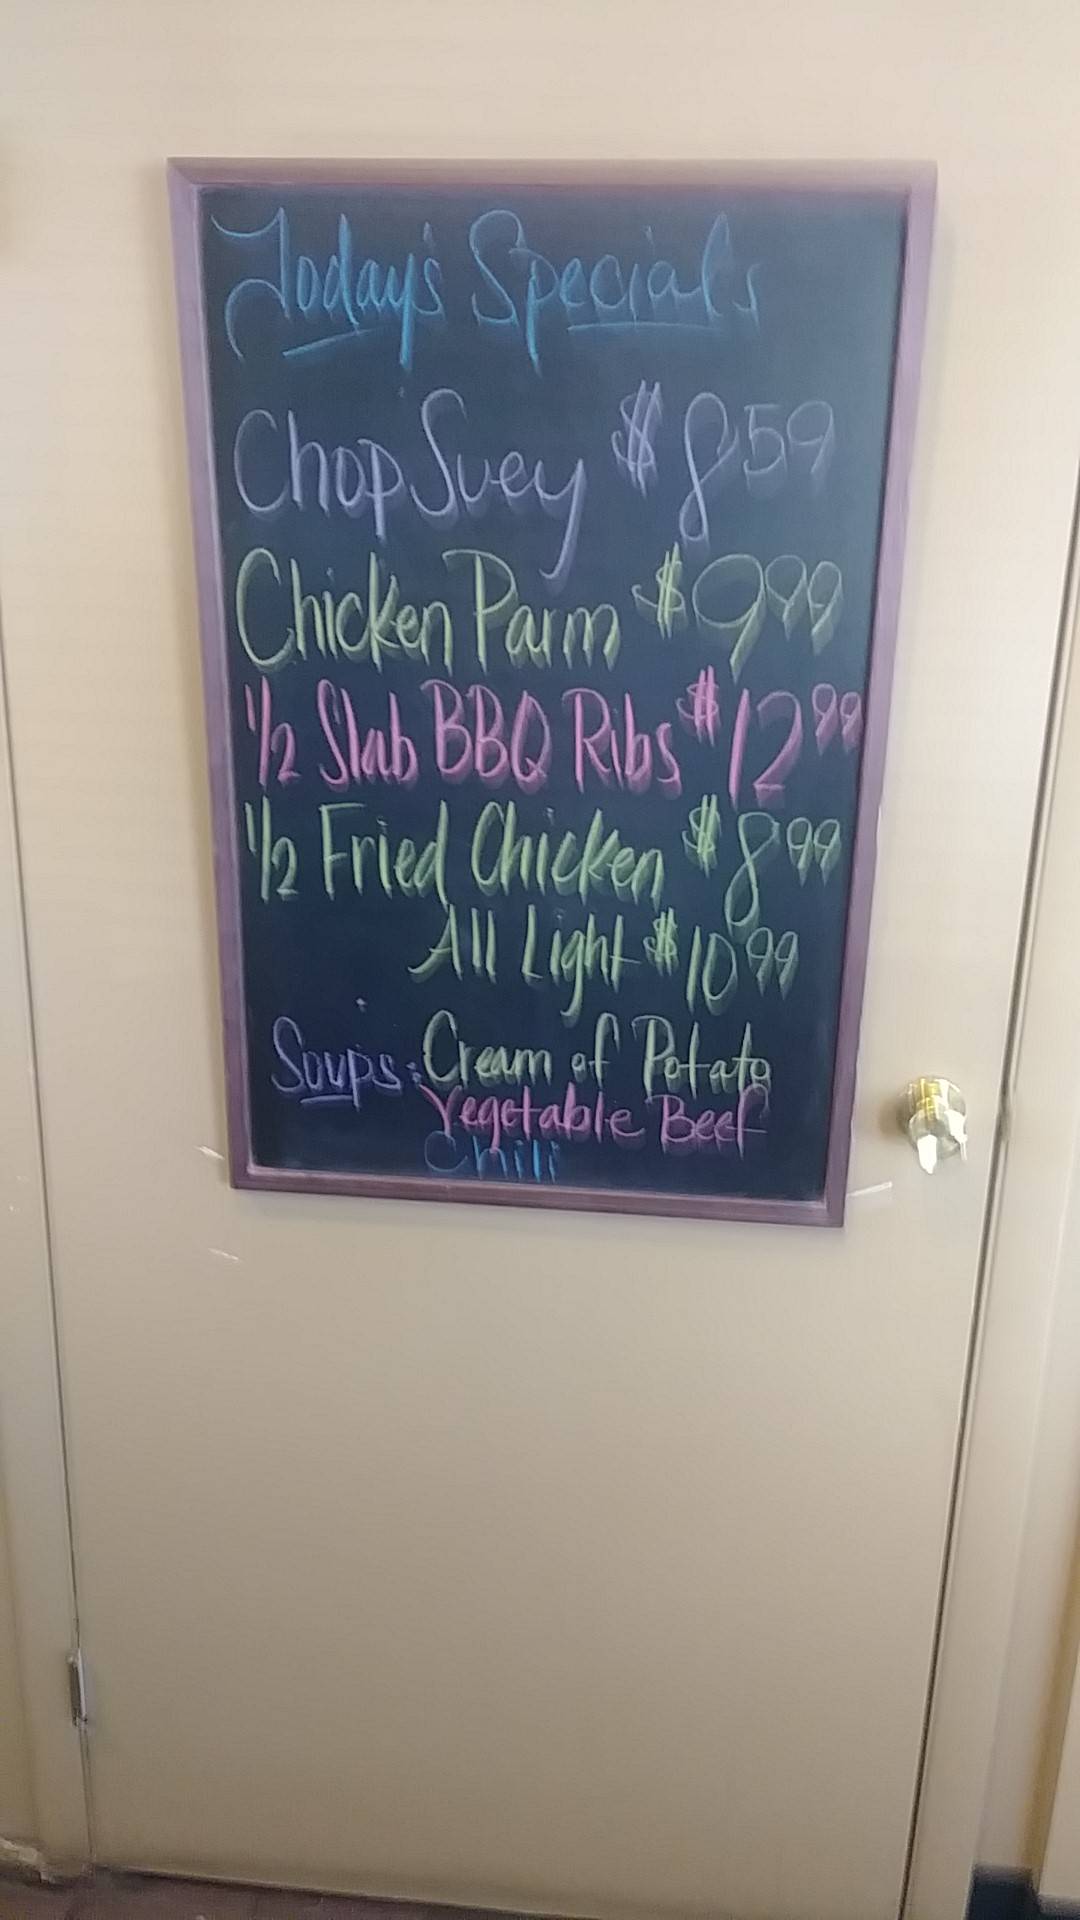 Today's Specials
Chop Suey $8.59
Chicken Parm $9.99
1/2 Slab BBQ Ribs $12.99
1/2 Fried Chicken $8.99
All Light $10.99
Soups: Cream of Potato
Vegetable Beef
Chili